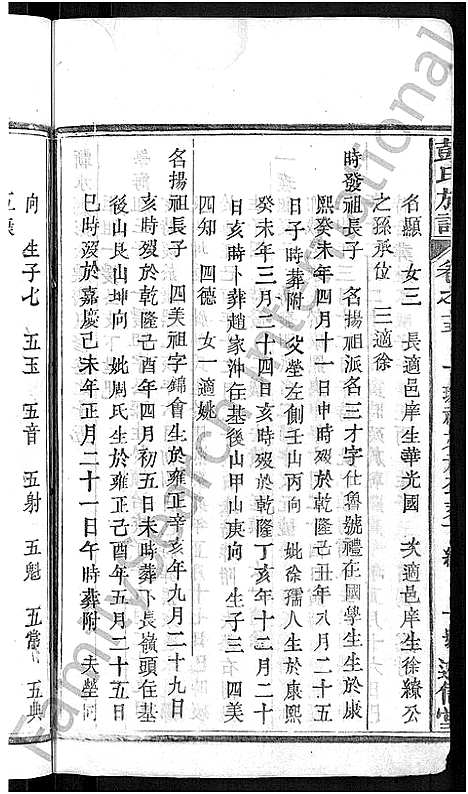 彭氏族譜 卷之
名顯 女三 長適邑庠生華光國 次適邑庠生徐繚公
之孫承位 三適徐
時發祖長子 名揚祖派名三才字仕魯號禮在國學生生於康
熙癸未年四月十一日申時歿於乾隆己丑年八月二十五
日子時葬附 父塋左側壬山丙向 妣徐孺人生於康熙
癸未年三月二十四日亥時歿於乾隆丁亥年十二月二十
日亥時卜葬趙家沖在基後山甲山庚向 生子三 四美
四知 四德 女一適姚
名揚祖長子 四美祖字錦會生於雍正辛亥年九月二十九日
亥時歿於乾隆己酉年四月初五日未時葬卜長嶺頭在基
後山艮山坤向 妣周氏生於雍正己酉年五月二十五日
巳時歿於嘉慶己未年正月二十一日午時葬附 夫塋同
向 生子七 五玉 五音 五射 五魁 五常 五典
FamilySearch International